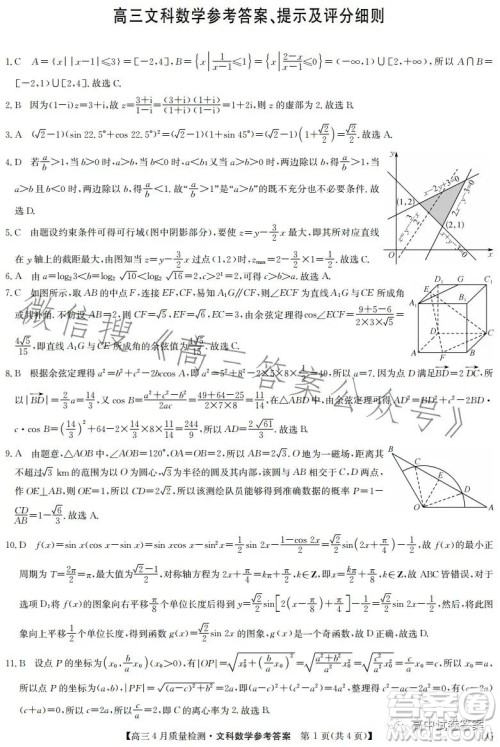 高三文科数学参考答案、提示及评分细则
1. C A={x||x-1|≤3}=[-2,4],B={x|1/(x-1)≤1}={x|(2-x)/(x-1)≤0}=(-∞,1)∪[2,+∞),所以 A∩B=
[-2,1)∪[2,4].故选 C.
2. B 因为(1-i)z=3+i,故 z=(3+i)/(1-i)=(3+i)(1+i)/(1-i)(1+i)=1+2i,则 z 的虚部为 2.故选 B.
3. A (√2-1)(sin 22.5°+cos 22.5°)²=(√2-1)(1+sin 45°)=(√2-1)(1+√2/2)=√2/2.故选 A.
4. D 若a/b>1,当 b>0 时,a>b,当 b<0 时,故 a<b1 又当 a>b 时,两边除以 b,得a/b>1,当
a>b 且 b<0 时,两边除以 b,得a/b<1.故“a/b>1”是“a>b”的既不充分也不必要条件.故
选 D.
5. C 由题设约束条件可得可行域(图中阴影部分),要使 z=y-3/2x 最大,即其所对应直线
在 y 轴上的截距最大,由图知:当 z=y-3/2x 过点(1,2)时,zmax=2-3/2×1=1/2.故选 C.
(1,2)
(2,1)
6. A 由 a=log₂3<b=log₂√10<log₂√16=2,c>2¹=2,可得 c>b>a.故选 A.
7. C 如图所示,取 AB 的中点 F,连接 EF,CF,易知 A₁G∥CF,则∠ECF 为直线 A₁G 与 CE 所成角
或其补角.不妨设 AB=2,则 CF=√5,EF=√6,EC=3,由余弦定理得 cos∠ECF=(9+5-6)/(2×3×√5)=
4√5/15,即直线 A₁G 与 CE 所成角的余弦值为4√5/15.故选 C.
8. B 根据余弦定理得 a²=b²+c²-2bccos A,即
=49,所以 a=7.因为点 D 满足BD=2DC,所
以|BD|=2/3a=14/3,又 cos B=(a²+c²-b²)/2ac=(49+64-25)/(2×7×8)=11/14,在△ABD 中,由余弦定理可得 AD²=BD²+c²-2BD
·c·cos B=(14/3)²+64-2×14/3×8×11/14=244/9,所以 AD=2√61/3.故选 B.
9. A 由题意,△AOB 中,∠AOB=120°,OA=OB=2,所以 AB=2√3.O 地为一磁场,距离其
不超过√3 km 的范围为以 O 为圆心,√3为半径的圆及其内部,与 AB 交于 C,D 两点,
作 OE⊥AB,则 OE=1,所以 CD=2√2,所以该测绘队员能够得到准确数据的概率 P=1-
CD/AB=1-√6/3.故选 A.
10. D f(x)=sin x(cos x-sin x)=sin xcos x-sin²x=1/2sin 2x-(1-cos 2x)/2=√2/2sin(2x+π/4)-1/2,故 f(x)的最小正
周期为 T=2π/2=π,最大值为√2/2-1/2,对称轴方程为 2x+π/4=kπ+π/2,k∈Z,即 x=kπ/2+π/8,k∈Z,故 ABC 皆错误,对于
选项 D,将 f(x)的图象向右平移π/8个单位长度后得到 y=√2/2sin[2(x-π/8)+π/4]-1/2=√2/2sin 2x-1/2,然后,将此图
象向上平移1/2个单位长度,得到函数 g(x)=√2/2sin 2x 的图象,故 D 正确.故选 D.
11. B 设点 P 的坐标为(x₀,b/a x₀)(x₀>0),有|OP|=√(x₀²+(b/a x₀)²)=√((a²+b²)/a² x₀²)=√(c²/a² x₀²)=c/a x₀=c,所以 x₀=a,
所以点 P 的坐标为(a,b),|PF|=√((a-c)²+b²)=2a,所以(a-c)²+
【高三4月质量检测·文科数学参考答案 第1页(共4页)】
微信搜《高三答案公众号》